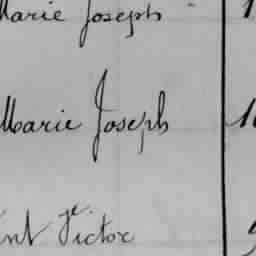 Marie Joseph
Marie Joseph
Victor